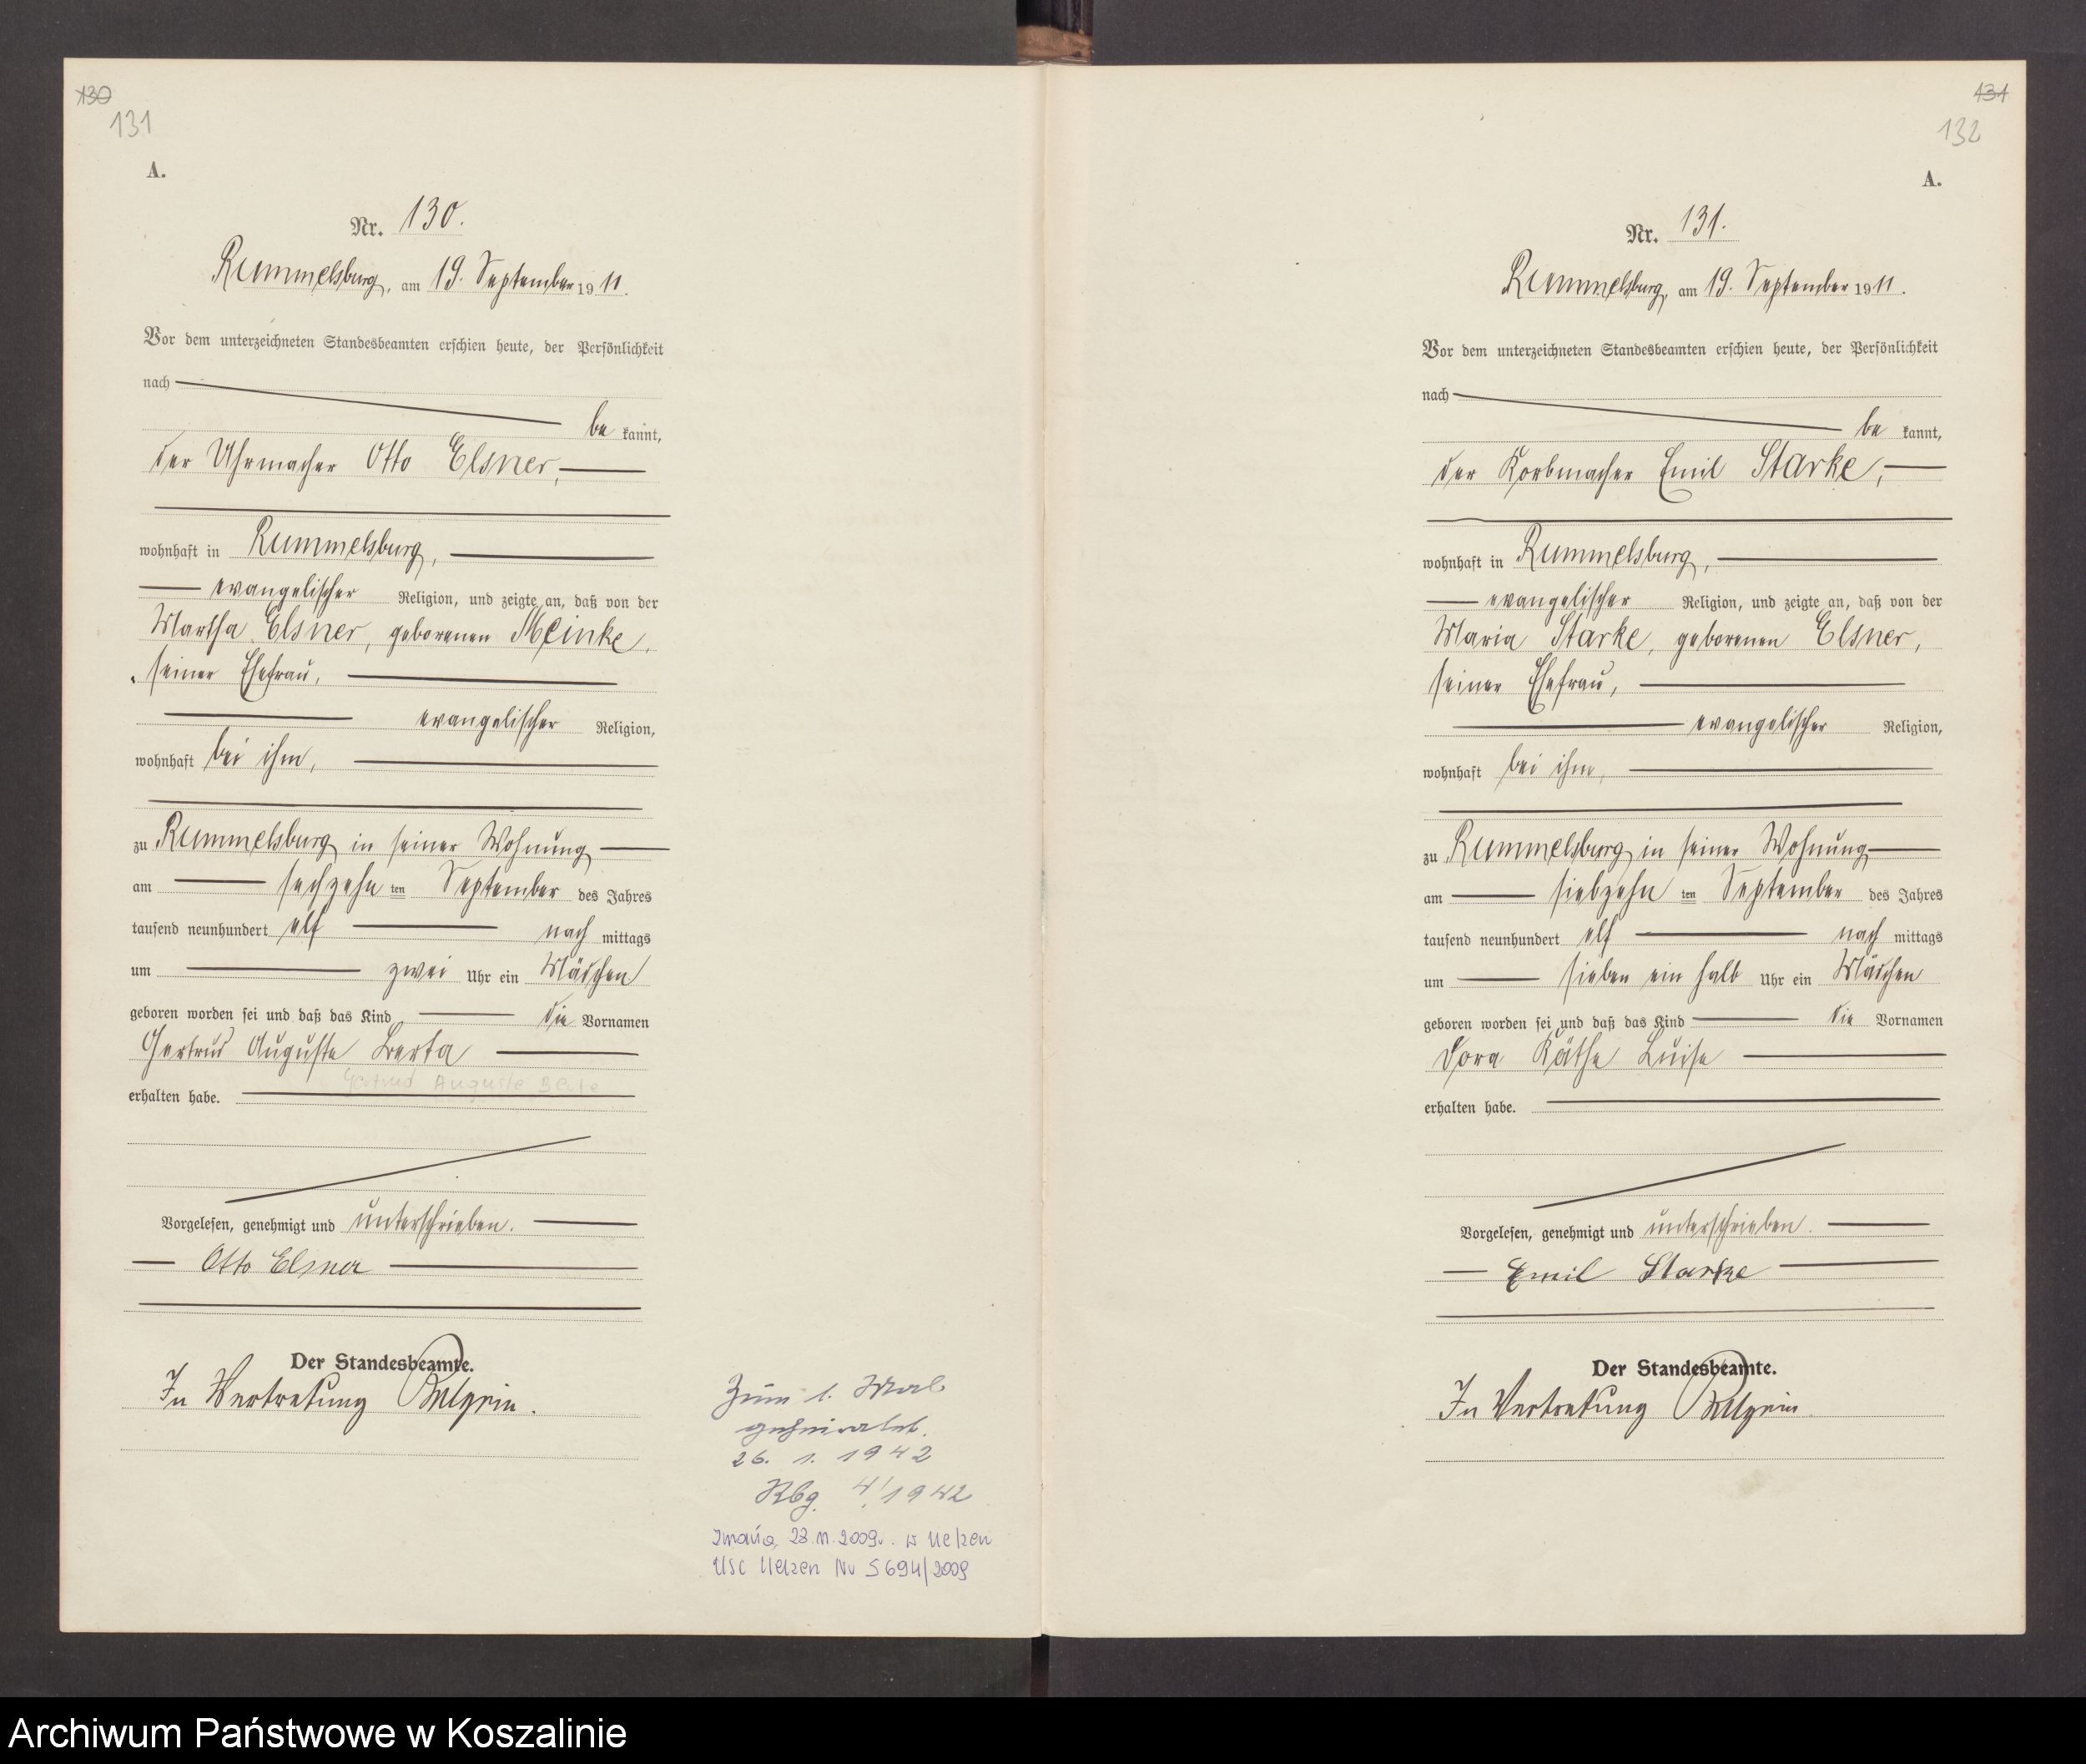 130
131
A.
Nr. 130.
Rummelsburg, am 19. September 1911.
Vor dem unterzeichneten Standesbeamten erschien heute, der Persönlichkeit
nach
be kannt,
der Uhrmacher Otto Elsner,
wohnhaft in Rummelsburg,
evangelischer Religion, und zeigte an, daß von der
Martha Elsner, geborenen Meinke,
seiner Ehefrau,
evangelischer Religion,
wohnhaft bei ihm,
zu Rummelsburg in seiner Wohnung
am sechzehn ten September des Jahres
tausend neunhundert elf nach mittags
um zwei Uhr ein Mädchen
geboren worden sei und daß das Kind die Vornamen
Gertrud Auguste Berta
Gertrud Auguste Berta
erhalten habe.
Vorgelesen, genehmigt und unterschrieben.
Otto Elsner
Der Standesbeamte.
In Vertretung
Zum 1. Mal
geheiratet.
26. 1. 1942
Rbg. 4/1942
Zmarła 23.11.2009r. w Uelzen
USC Uelzen Nr S 694/2009
131
132
A.
Nr. 131.
Rummelsburg, am 19. September 1911.
Vor dem unterzeichneten Standesbeamten erschien heute, der Persönlichkeit
nach
be kannt,
der Korbmacher Emil Starke,
wohnhaft in Rummelsburg,
evangelischer Religion, und zeigte an, daß von der
Maria Starke, geborenen Elsner,
seiner Ehefrau,
evangelischer Religion,
wohnhaft bei ihm,
zu Rummelsburg in seiner Wohnung
am siebzehn ten September des Jahres
tausend neunhundert elf nach mittags
um sieben ein halb Uhr ein Mädchen
geboren worden sei und daß das Kind die Vornamen
Dora Käthe Luise
erhalten habe.
Vorgelesen, genehmigt und unterschrieben.
Emil Starke
Der Standesbeamte.
In Vertretung
Archiwum Państwowe w Koszalinie